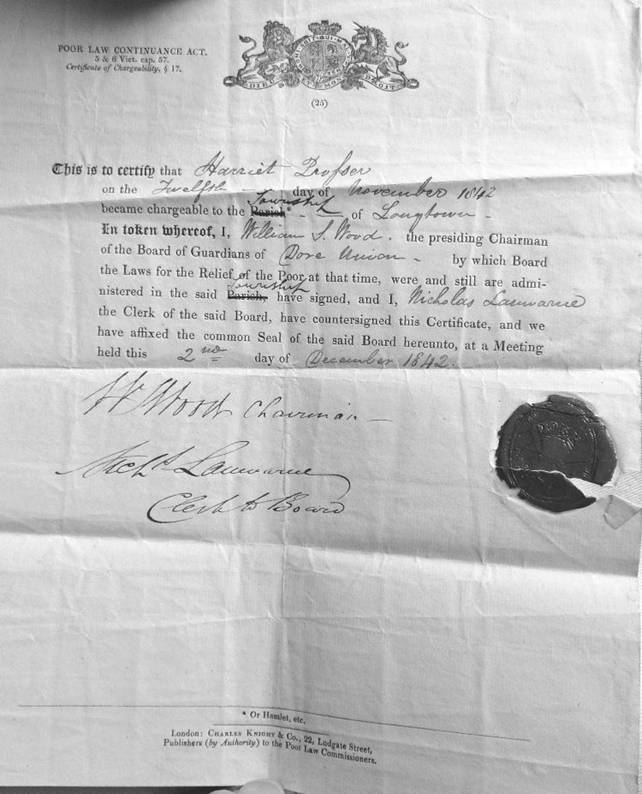 POOR LAW CONTINUANCE ACT.
5 & 6 Vict. cap. 57.
Certificate of Chargeability, § 17.
DIEU ET MON DROIT
(25)
This is to certify that Harriet Prosser
on the Twelfth day of November 1842
Township
became chargeable to the Parish* of Longtown
In token whereof, I, William S. Wood, the presiding Chairman
of the Board of Guardians of Dore Union by which Board
the Laws for the Relief of the Poor at that time, were and still are admi-
Township
nistered in the said Parish, have signed, and I, Nicholas Lanwarne
the Clerk of the said Board, have countersigned this Certificate, and we
have affixed the common Seal of the said Board hereunto, at a Meeting
held this 2nd day of December 1842.
W S Wood Chairman
Nichs Lanwarne
Clerk to Board
* Or Hamlet, etc.
London: CHARLES KNIGHT & Co., 22, Ludgate Street,
Publishers (by Authority) to the Poor Law Commissioners.